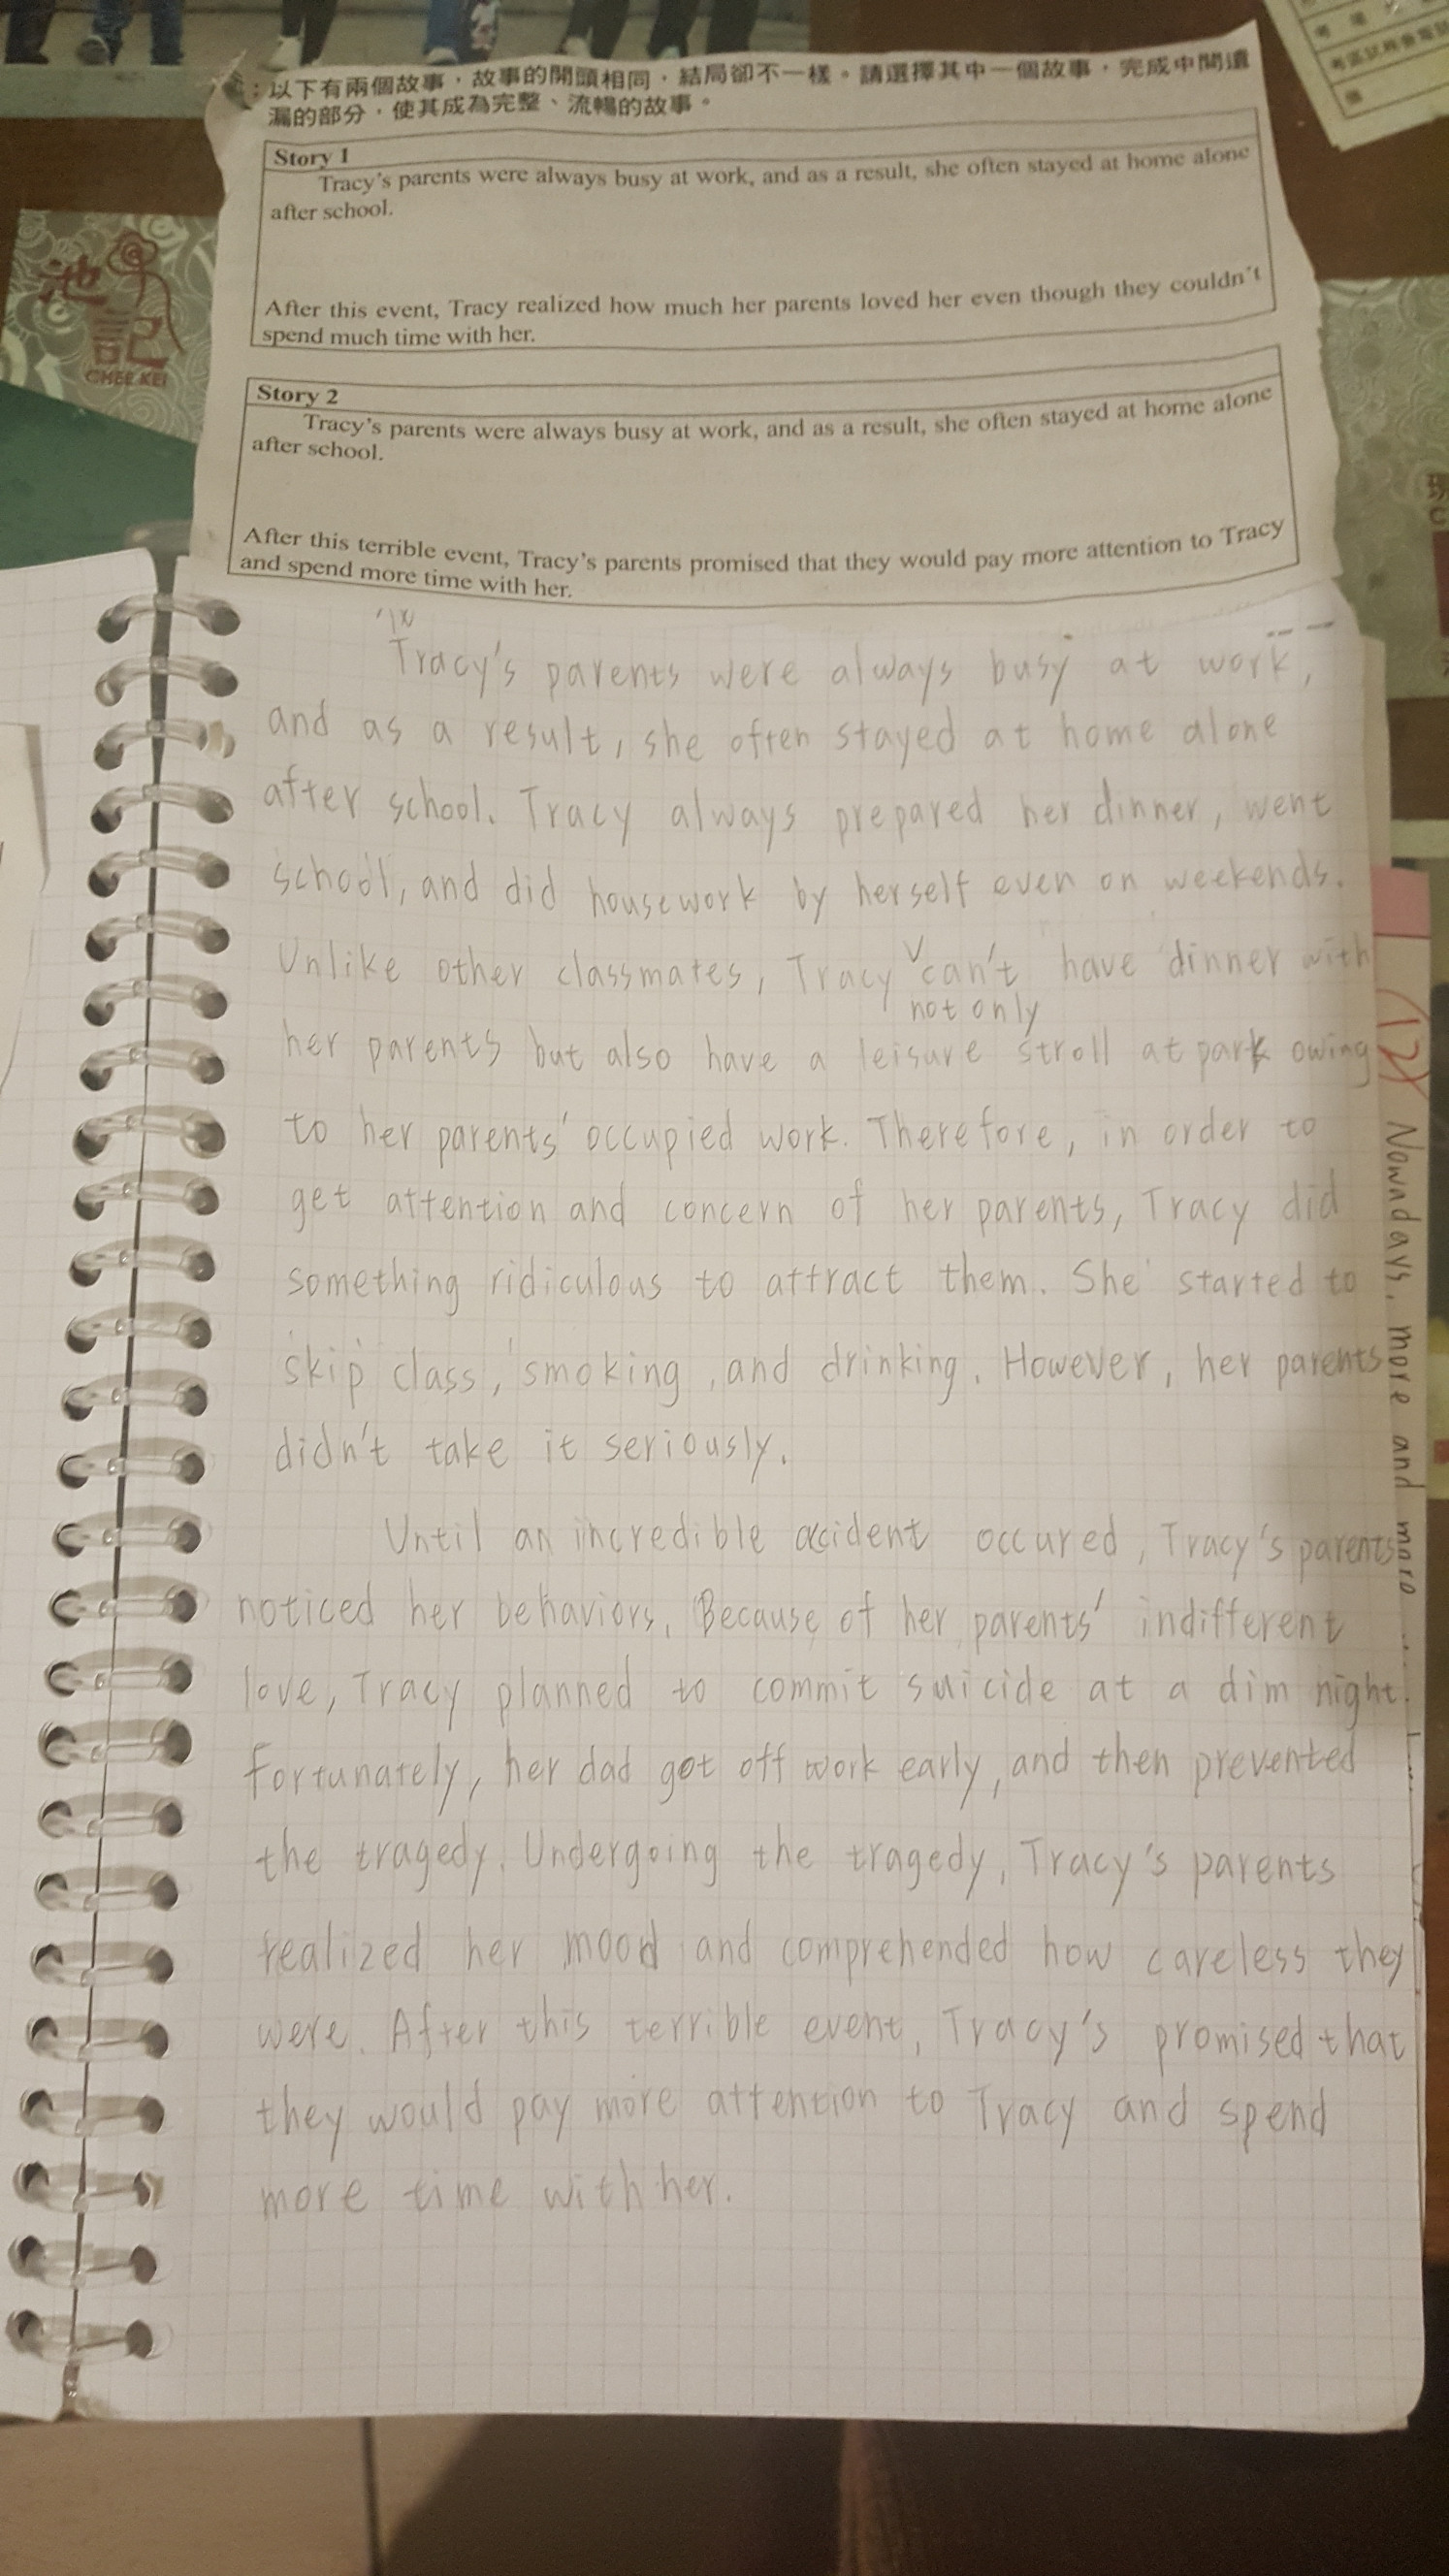 ：以下有兩個故事，故事的開頭相同，結局卻不一樣。請選擇其中一個故事，完成中間遺
漏的部分，使其成為完整、流暢的故事。
Story 1
Tracy's parents were always busy at work, and as a result, she often stayed at home alone
after school.
After this event, Tracy realized how much her parents loved her even though they couldn't
spend much time with her.
Story 2
Tracy's parents were always busy at work, and as a result, she often stayed at home alone
after school.
After this terrible event, Tracy's parents promised that they would pay more attention to Tracy
and spend more time with her.
Tracy's parents were always busy at work,
and as a result, she often stayed at home alone
after school. Tracy always prepared her dinner, went
school, and did housework by herself even on weekends.
Unlike other classmates, Tracy can't have dinner with
not only
her parents but also have a leisure stroll at park owing
to her parents' occupied work. Therefore, in order to
get attention and concern of her parents, Tracy did
something ridiculous to attract them. She started to
skip class, smoking, and drinking. However, her parents
didn't take it seriously.
Until an incredible accident occured, Tracy's parents
noticed her behaviors. Because of her parents' indifferent
love, Tracy planned to commit suicide at a dim night.
Fortunately, her dad got off work early, and then prevented
the tragedy. Undergoing the tragedy, Tracy's parents
realized her mood and comprehended how careless they
were. After this terrible event, Tracy's promised that
they would pay more attention to Tracy and spend
more time with her.
Nowadays, more and more
池記
CHEE KEI